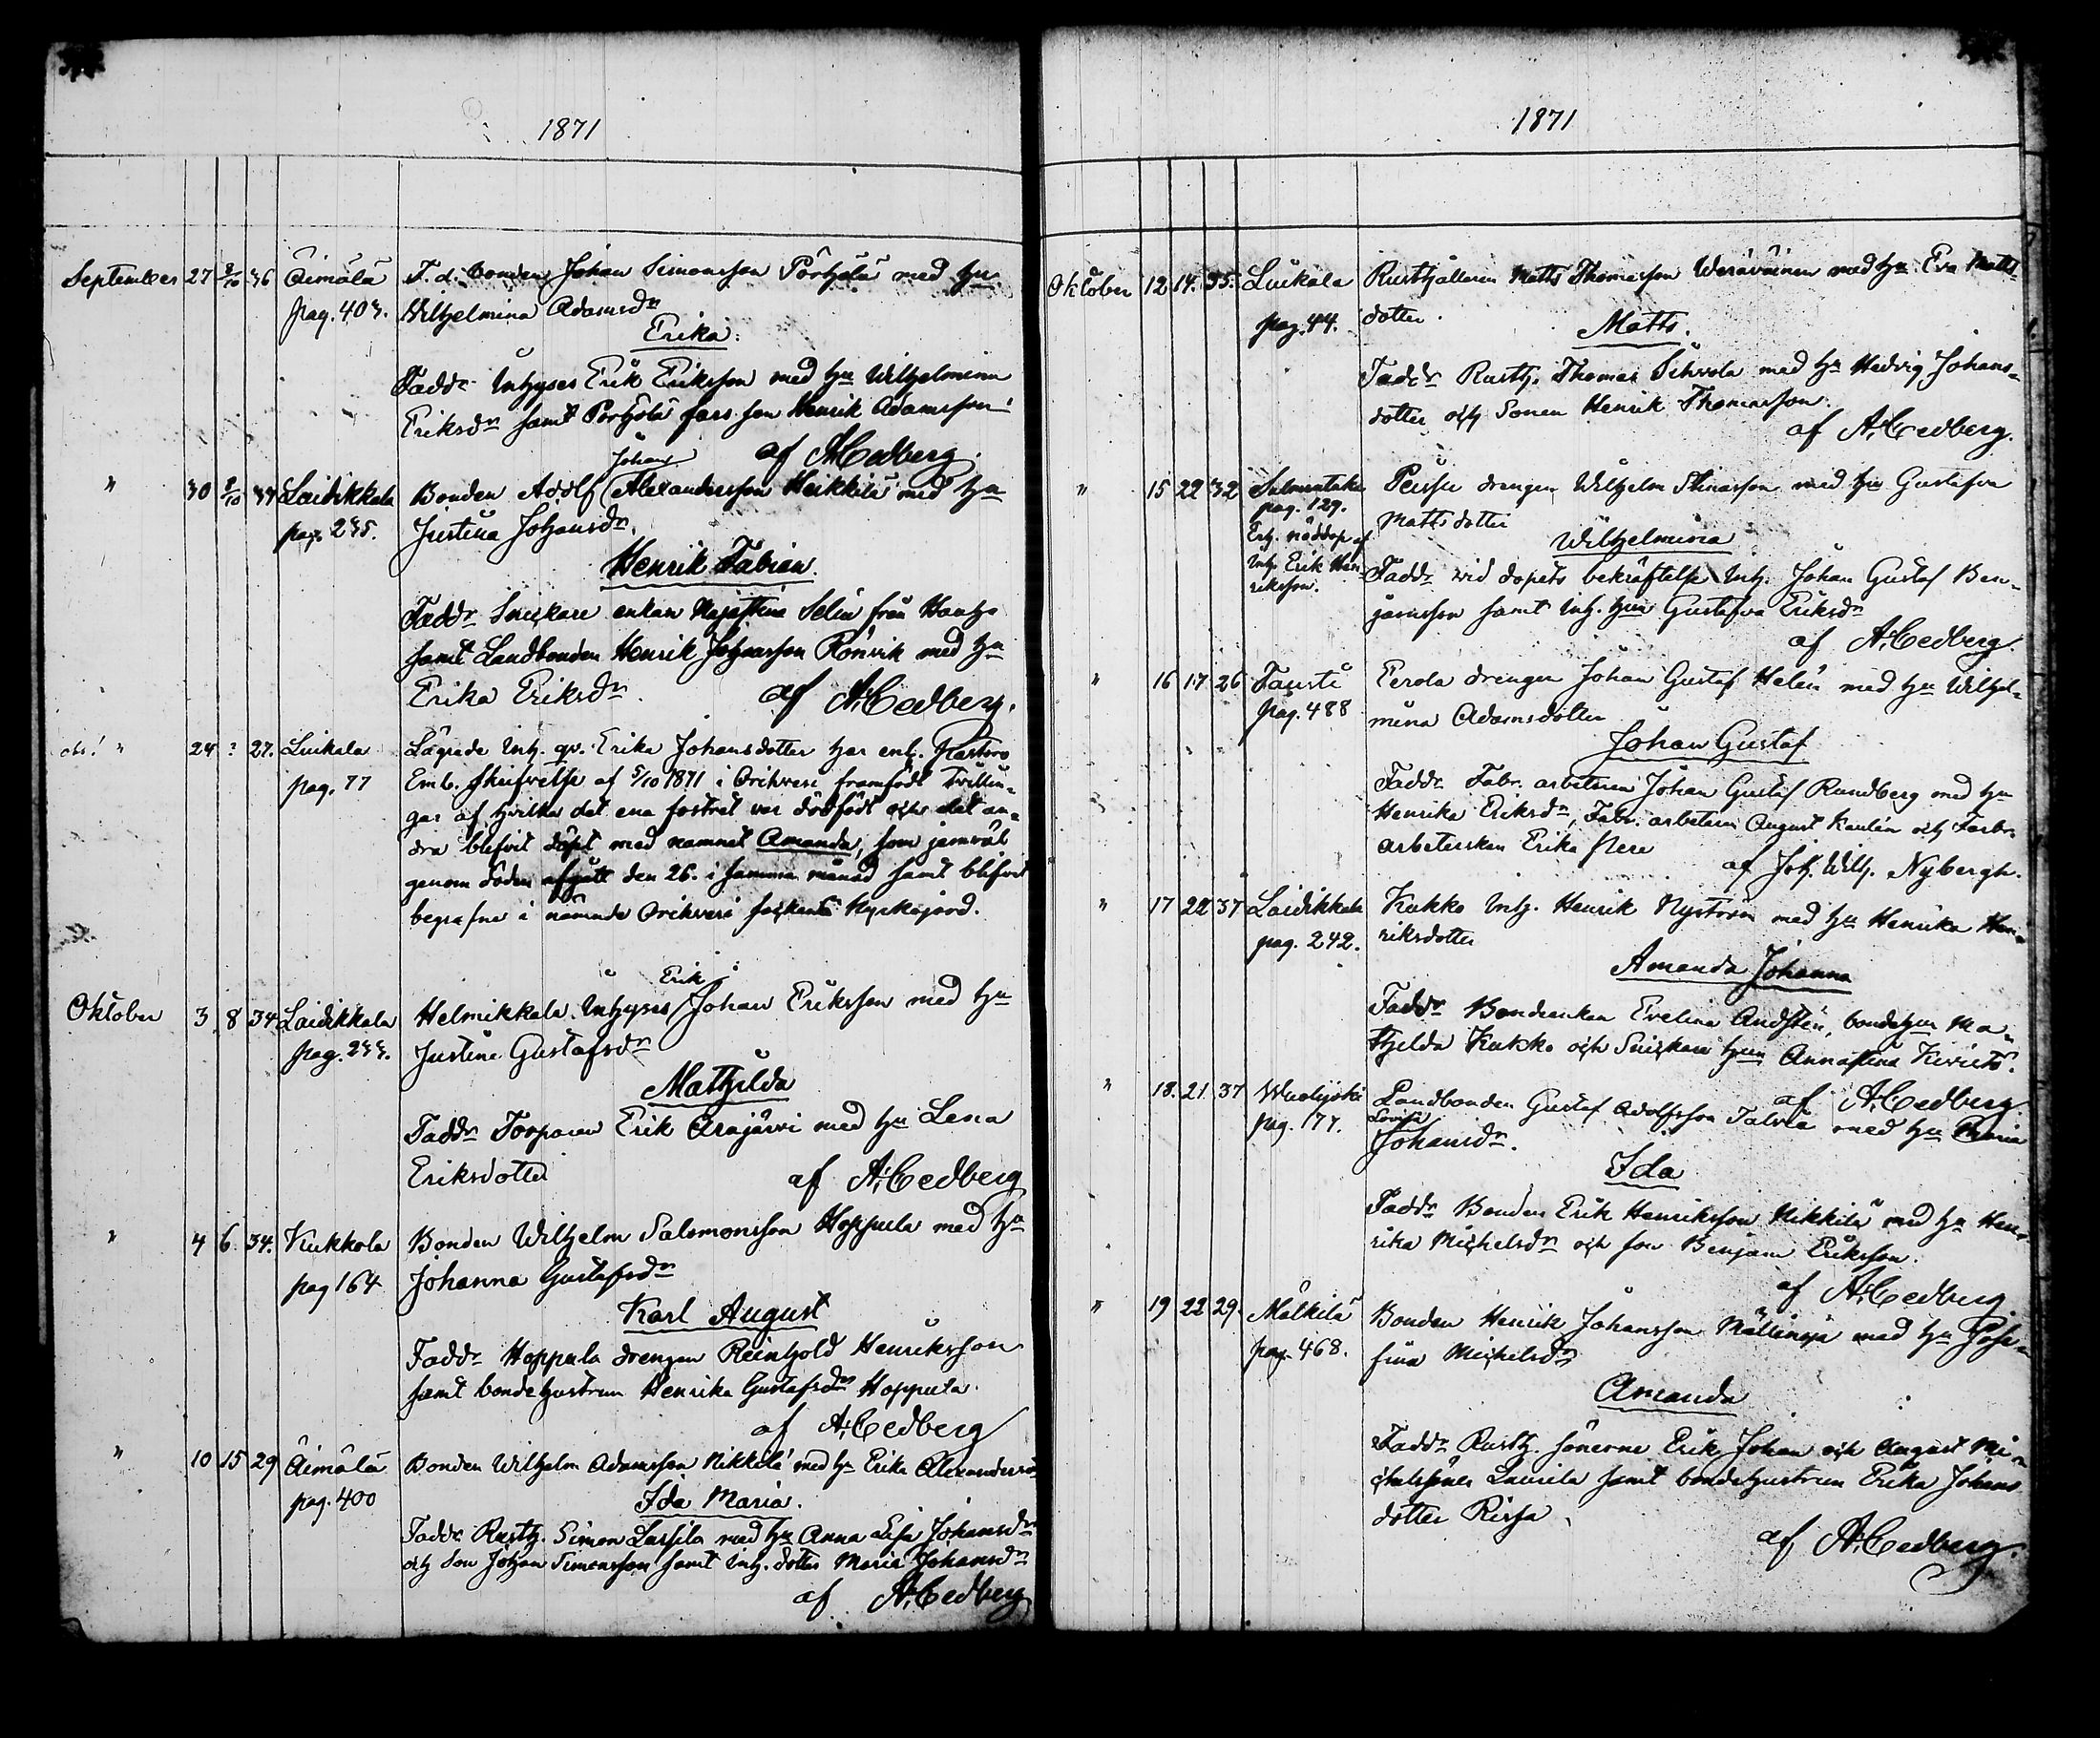 1871
September 27 8/10 36 Äimälä F. d. bonden Johan Simonsson Pörhölä med hu
pag. 403. Wilhelmina Adamsdr
Erika.
Faddr Inhyses Erik Eriksson med hu Wilhelmina
Eriksdr samt Pörhölä fars son Henrik Adamsson
af A. Cedberg.
Johan
" 30 8/10 37 Laidikkala Bonden Adolf Alexandersson Heikkilä med hu
pag. 235. Justina Johansdr.
Henrik Fabian.
Faddr Snickare enkan Maja Stina Selin från Hauho
samt Landbonden Henrik Johansson Rönvik med hu
Erika Eriksdr. af A. Cedberg.
" 24 27. Luikala Lägrade Inh. qv. Erika Johansdotter har enl. Pastors
pag. 77 Emb. skrifvelse af 5/10 1871 i Orihvesi framfödt Tvillin-
gar af hvilka det ena fostret var dödfödt och det an-
dra blifvit döpt med namnet Amanda, som jemväl
genom döden afgått den 26. i samma månad samt blifvit
begrafne i nämnde Orihvesi sockens kyrkojord.
Erik
Oktober 3 8 34 Laidikkala Helmikkala Inhyses Johan Eriksson med hu
pag. 233. Justina Gustafsdr
Mathilda
Faddr Torparen Erik Arajärvi med hu Lena
Eriksdotter af A. Cedberg
" 4 6 34. Kukkola Bonden Wilhelm Salomonsson Hoppula med hu
pag 164 Johanna Gustafsdr
Karl August
Faddr Hoppula drengen Reinhold Henriksson
samt bondehustrun Henrika Gustafsdr Hoppula.
af A. Cedberg
" 10 15 29 Äimälä Bonden Wilhelm Adamsson Nikkilä med hu Erika Alexandersdr
pag. 400 Ida Maria.
Faddr. Rusth. Simon Lassila med hu Anna Lisa Johansdr
och son Johan Simonsson samt Inh. dotter Maria Johansdr
af A. Cedberg
1871
Oktober 12 14. 35. Luikala Rusthållaren Matts Thomasson Weräväinen med hu Eva Matts-
pag. 44. dotter.
Matts.
Faddr Rusth. Thomas med hu Hedvig Johans-
dotter och Sonen Henrik Thomasson.
af A. Cedberg.
" 15 22 32 Salmentaka Peissu drengen Wilhelm Thomasson med hu Gustafva
pag. 129. Mattsdotter
Erh. nöddop af Wilhelmina
Inh. Erik Hen- Faddr vid dopets bekräftelse Inh. Johan Gustaf Ben-
riksson. jamsson samt Inh. hun Gustafva Eriksdr
af A. Cedberg.
" 16 17 26 Tausti Eerola drengen Johan Gustaf Helin med hu Wilhel-
pag. 488 mina Adamsdotter
Johan Gustaf
Faddr Fabr. arbetaren Johan Gustaf Rundberg med hu
Henrika Eriksdr, Fabr. arbetaren August Kaulin och Fabr.
arbeterskan Erika Nere
af Joh. Wilh. Nybergh.
" 17 22 37 Laidikkala Kukko Inh. Henrik Nyström med hu Henrika Hen-
pag. 242. riksdotter
Amanda Johanna
Faddr Bondenkan Evelina Andstén, bondehun Ma-
thilda Kukko och Snickare hun Anna Stina Kivistö.
af A. Cedberg
" 18. 21. 37 Wuolijoki Landbonden Gustaf Adolfsson Talvia med hu Maria
Lovisa
pag. 177. Johansdr.
Ida
Faddr Bonden Erik Henriksson Nikkilä med hu Hen-
rika Michelsdr och son Benjam Eriksson.
af A. Cedberg.
" 19 22 29. Mälkilä Bonden Henrik Johansson Mällinoja med hu Jose-
pag. 468. fina Michelsdr
Amanda
Faddr Rusth. sönerne Erik Johan och August Mi-
Laurila samt bondehustrun Erika Johans
dotter Rissa
af A. Cedberg.